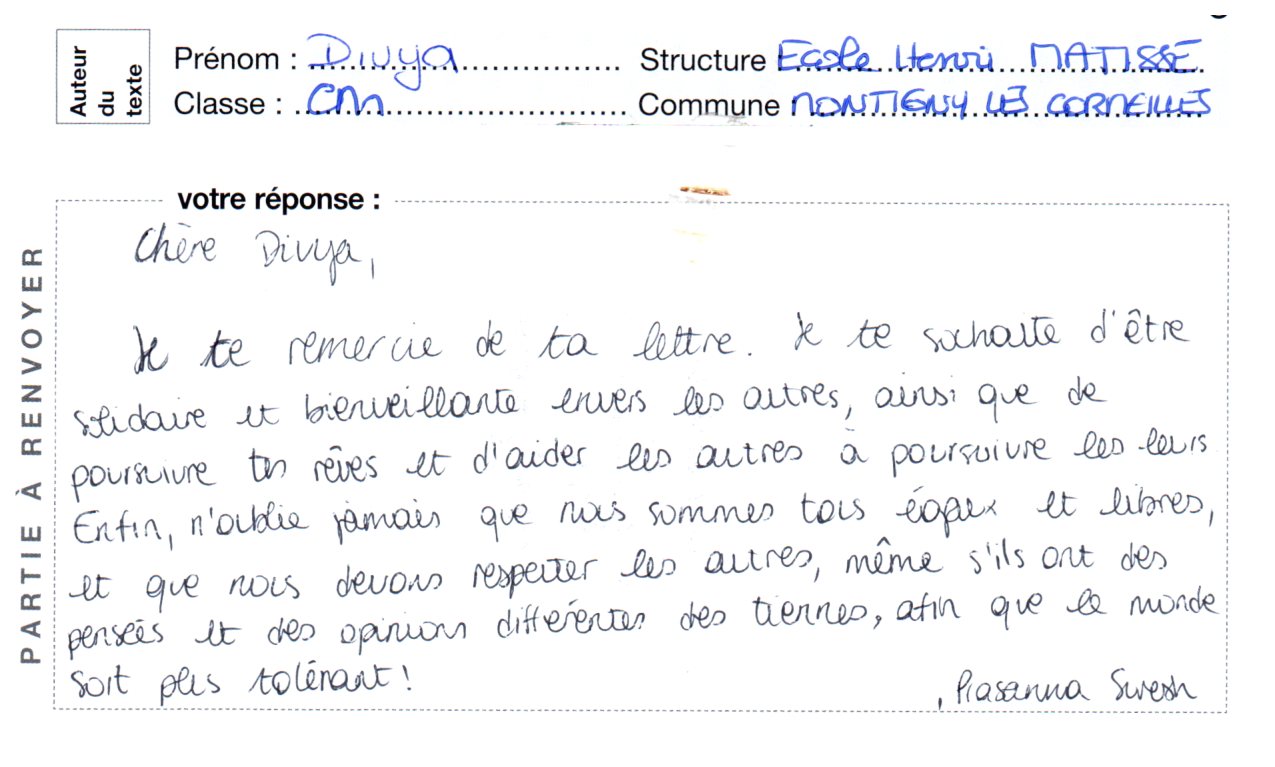 Auteur du texte
Prénom : Divya Structure Ecole Henri MATISSE
Classe : CM Commune MONTIGNY LES CORMEILLES
votre réponse :
PARTIE À RENVOYER
Chère Divya,
Je te remercie de ta lettre. Je te souhaite d'être
solidaire et bienveillante envers les autres, ainsi que de
poursuivre tes rêves et d'aider les autres à poursuivre les leurs
Enfin, n'oublie jamais que nous sommes tous égaux et libres,
et que nous devons respecter les autres, même s'ils ont des
pensées et des opinions différentes des tiennes, afin que le monde
soit plus tolérant !
, Prasanna Suresh